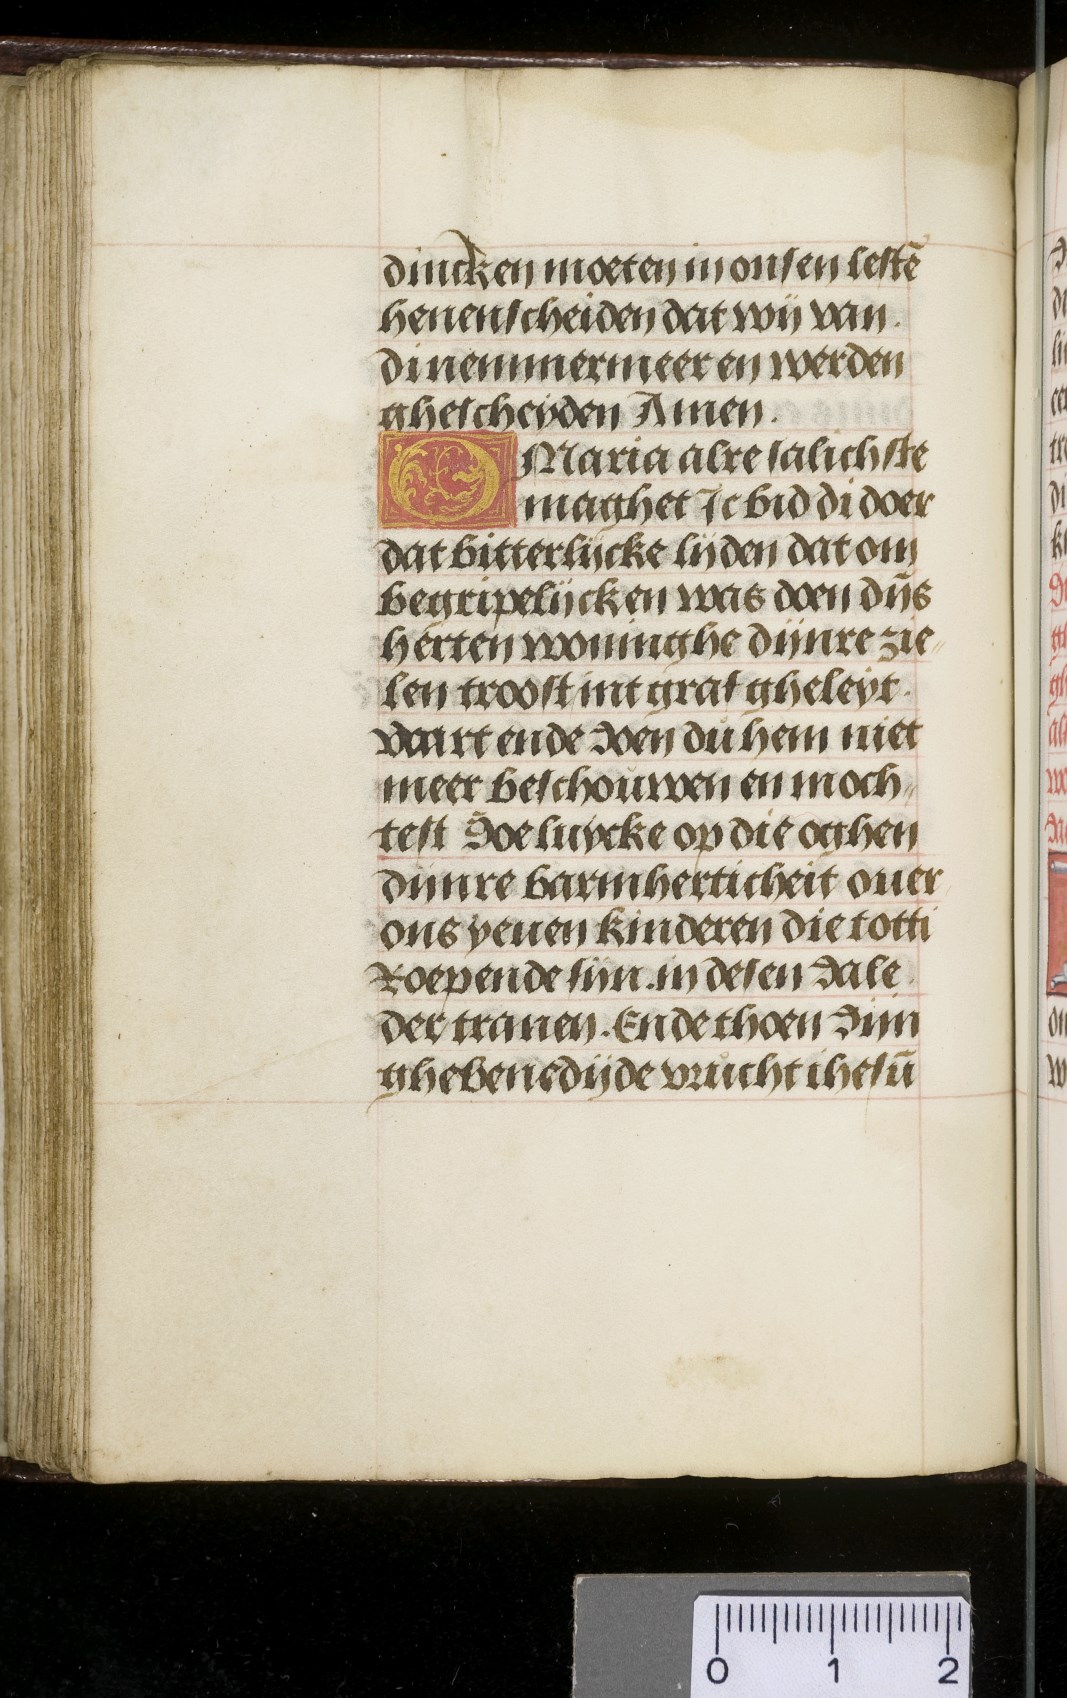 dincken moeten in onsen lestē
henenscheiden dat wij van.
di nemmermeer en werden
ghescheyden Amen.
O Maria alre salichste
maghet Ic bid di doer
dat bitterlijcke lijden dat om
begripelijcken was doen dijs
herten woninghe dijnre zie〃
len troost int graf gheleyt.
waert ende doen du hem niet
meer beschouwen en moch〃
test Doe luycke op die oghen
dijnre barmherticheit ouer
ons yeuen kinderen die totti
Roepende sijn. in desen dale
der tranen. Ende thoen dijn
ghebenedijde vrucht ihesū
0 1 2